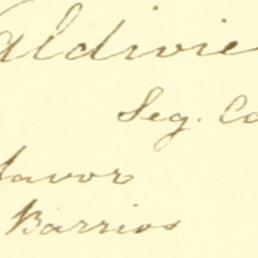 aldivie
Seg. Co
favor
Barrios